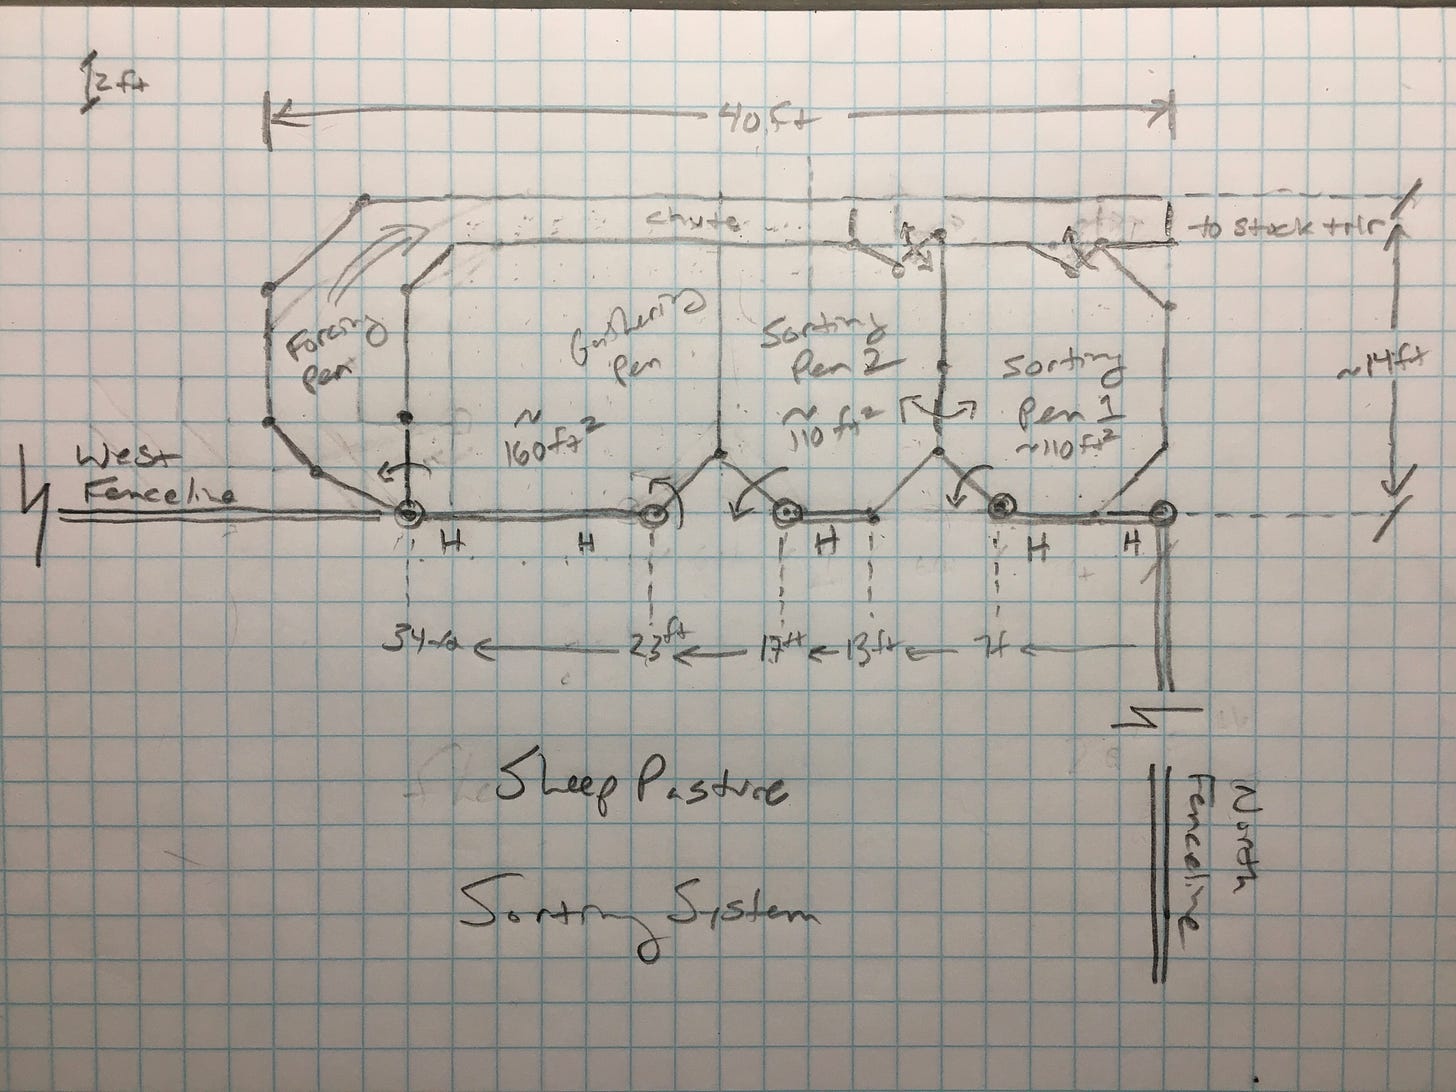 2ft
40ft
chute
to stock trlr
Forcing
Pen
Gathering
Pen
Sorting
Pen 2
Sorting
Pen 1
~14ft
~
160ft²
~
110 ft²
~110ft²
West
Fenceline
H H H H H
34ft 23ft 17ft 13ft 7ft
Sheep Pasture
Sorting System
North
Fenceline